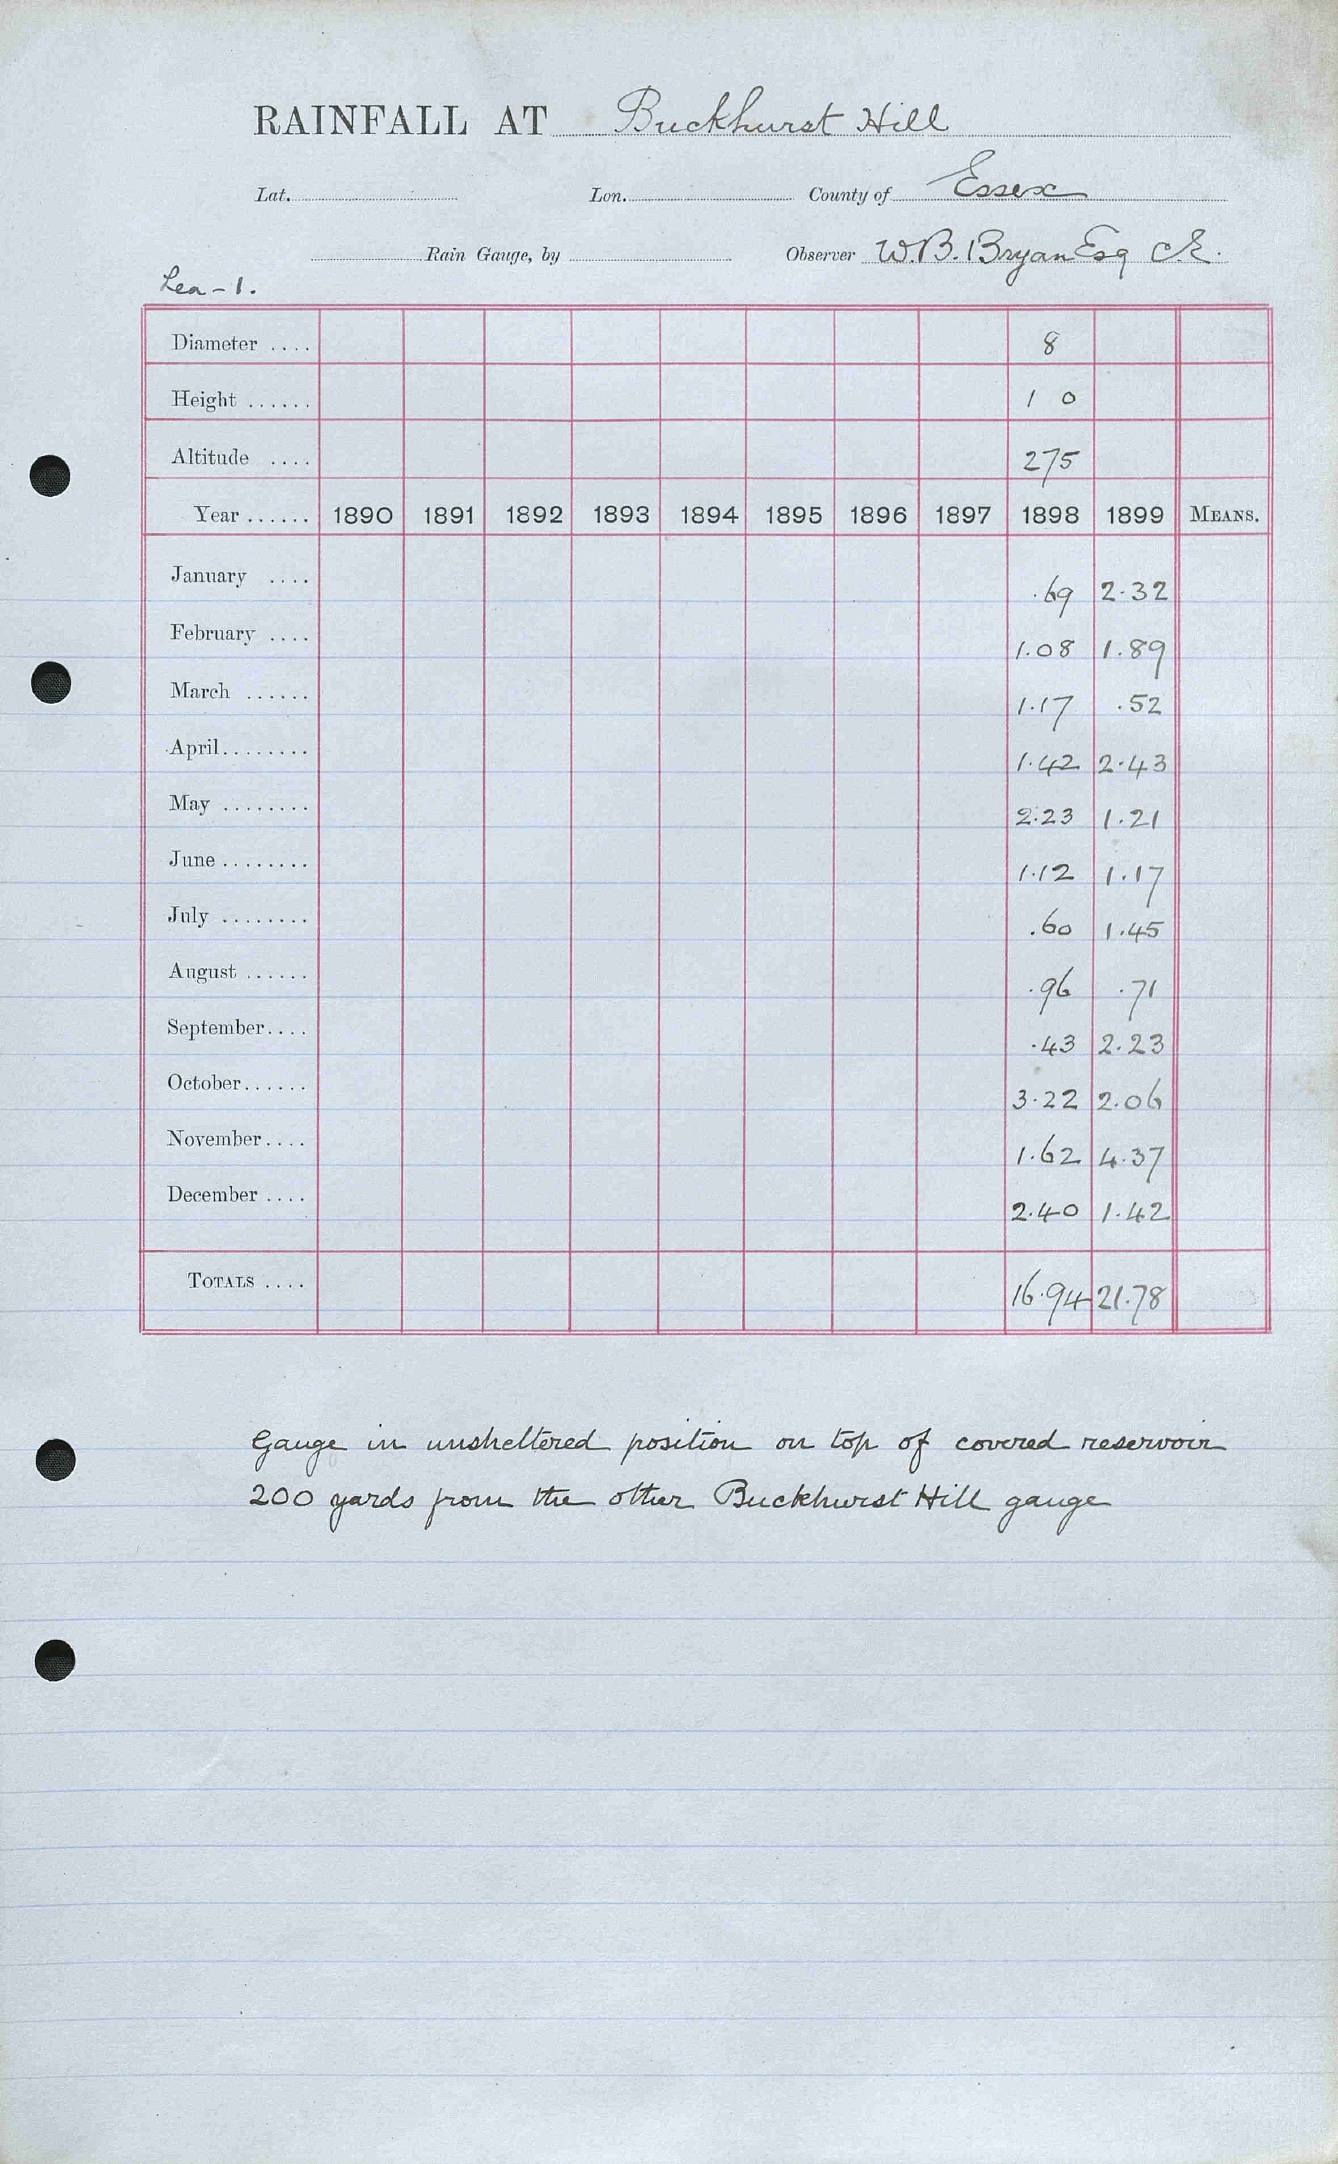 RAINFALL AT Buckhurst Hill
Lat. Lon. County of Essex
Rain Gauge, by Observer W.B. Bryan Esq C.E.
Lea-1.
Diameter .... 8
Height ...... 1 0
Altitude .... 275
Year ...... 1890 1891 1892 1893 1894 1895 1896 1897 1898 1899 MEANS.
January .... .69 2.32
February .... 1.08 1.89
March ...... 1.17 .52
April........ 1.42 2.43
May ........ 2.23 1.21
June ........ 1.12 1.17
July ........ .60 1.45
August ...... .96 .71
September.... .43 2.23
October...... 3.22 2.06
November.... 1.62 4.37
December .... 2.40 1.42
TOTALS .... 16.94 21.78
Gauge in unsheltered position on top of covered reservoir
200 yards from the other Buckhurst Hill gauge